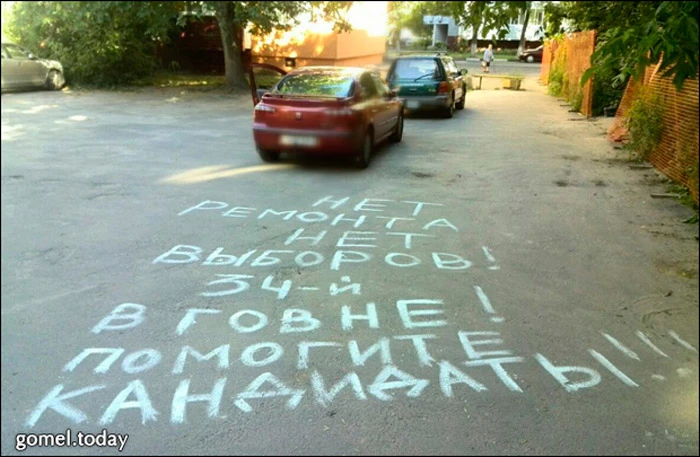 НЕТ
РЕМОНТА
НЕТ
ВЫБОРОВ!
34-й
В ГОВНЕ!
ПОМОГИТЕ
КАНДИДАТЫ!!!
gomel.today